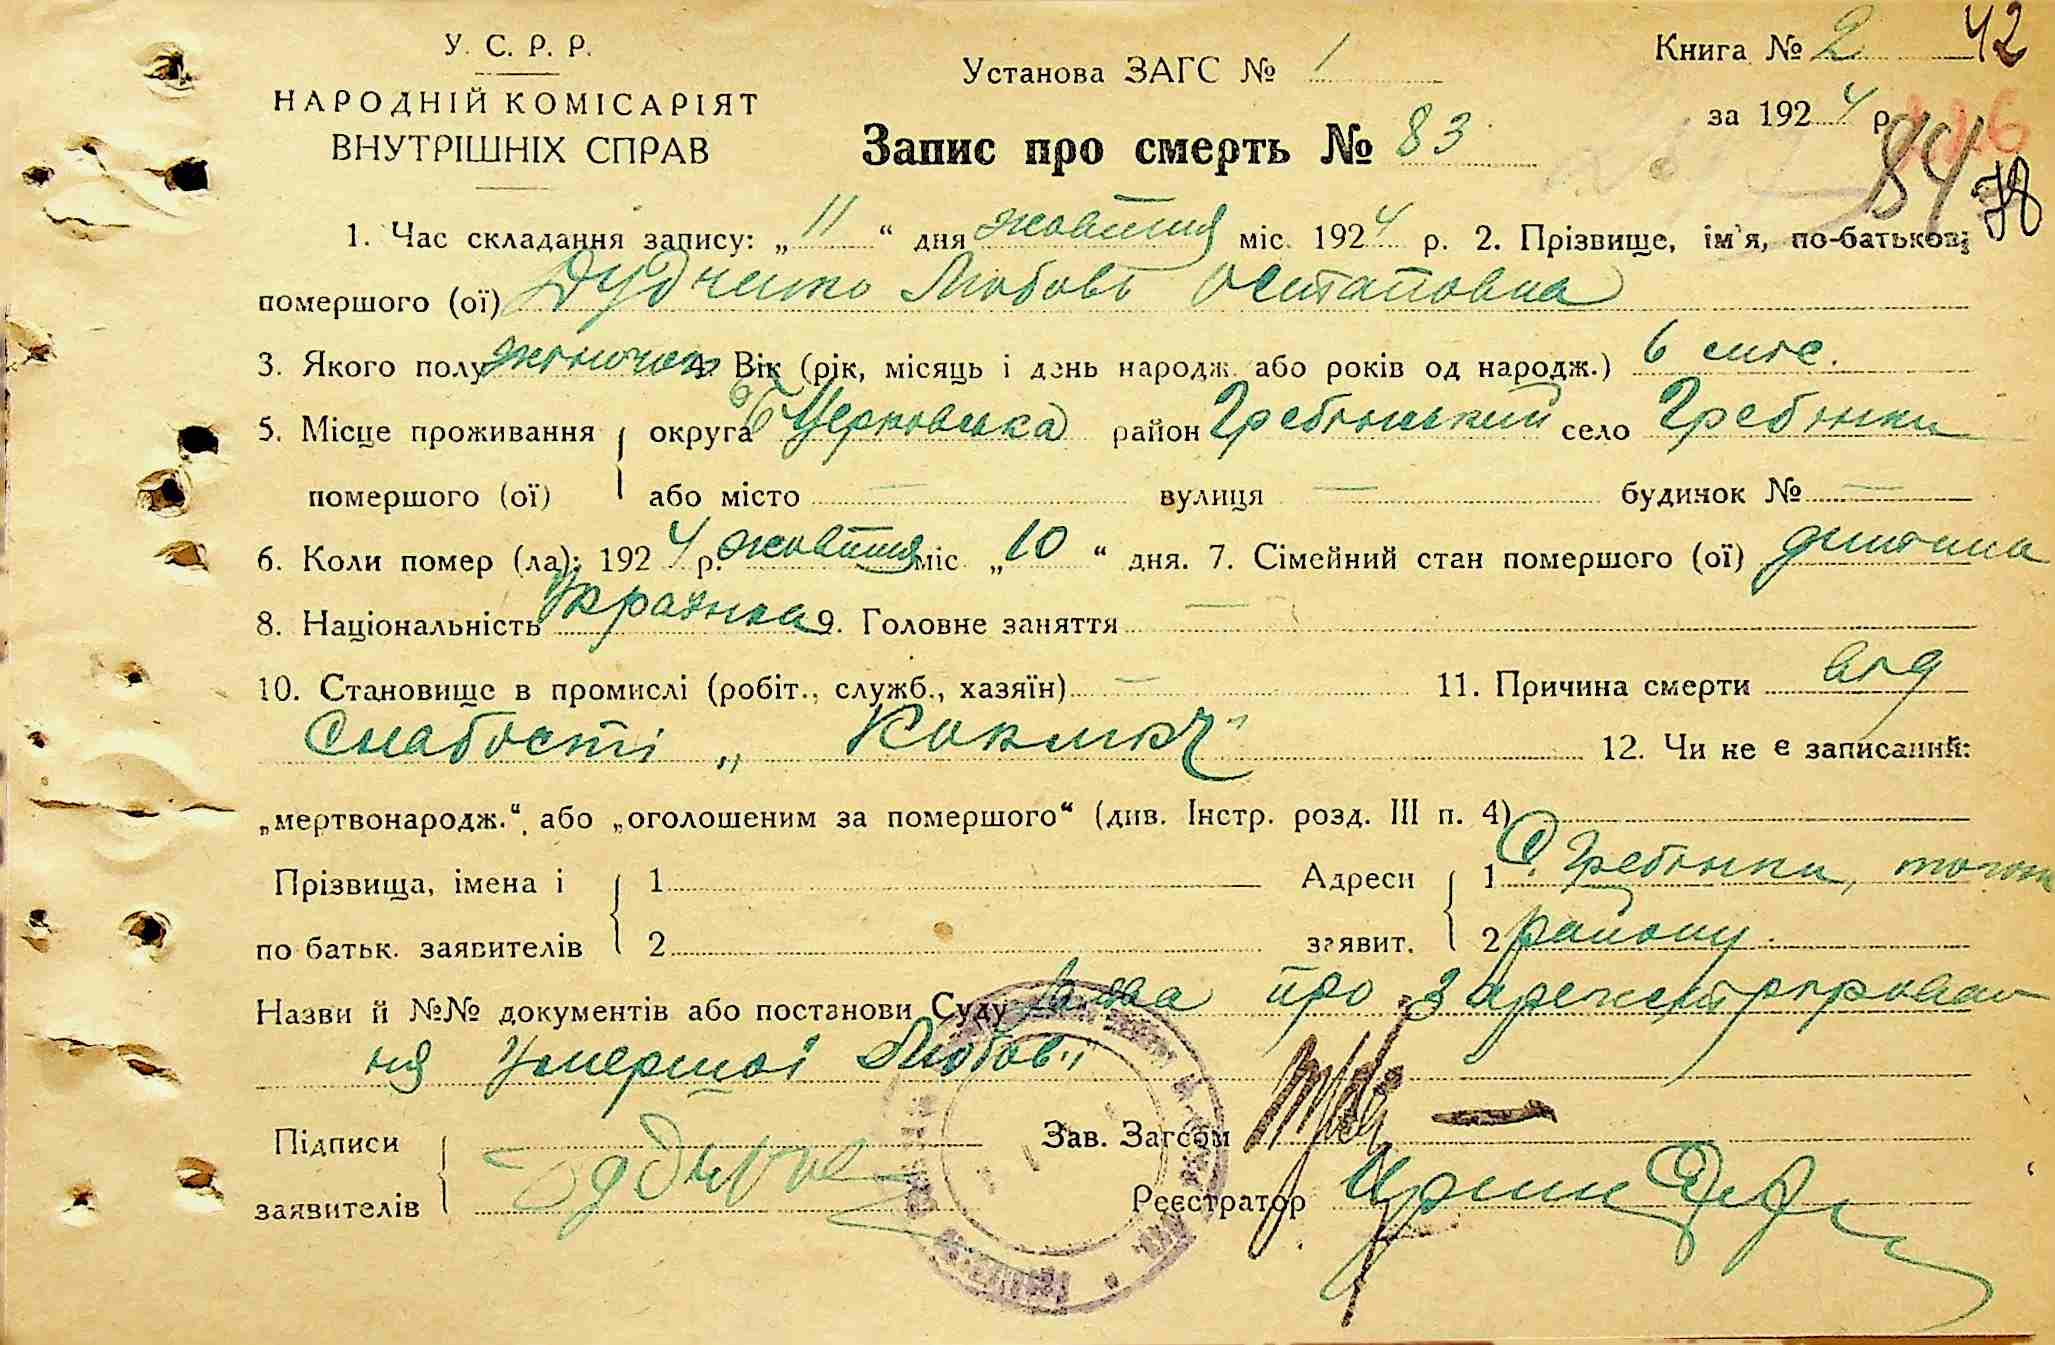 У. С. Р. Р.
НАРОДНІЙ КОМІСАРІЯТ
ВНУТРІШНІХ СПРАВ
Установа ЗАГС № 1
Книга № 2 42
за 1924 р. 226
Запис про смерть № 83
84 78
1. Час складання запису: „11“ дня жовтня міс. 1924 р. 2. Прізвище, ім'я, по-батькові
помершого (ої) Дудченко Любовь Остаповна
3. Якого полу жіночого 4. Вік (рік, місяць і день народж. або років од народж.) 6 міс.
5. Місце проживання округа Б Церковська район Гребінський село Гребінки
помершого (ої) або місто — вулиця — будинок № —
6. Коли помер (ла): 1924 р. жовтня міс „10“ дня. 7. Сімейний стан помершого (ої) дитина
8. Національність Українка 9. Головне заняття —
10. Становище в промислі (робіт., служб., хазяїн) — 11. Причина смерти від
слабості „Коключ“
12. Чи не є записаний:
„мертвонародж.“, або „оголошеним за помершого“ (див. Інстр. розд. III п. 4)
Прізвища, імена і 1 Адреси 1 С. Гребінки, того ж
по батьк. заявителів 2 заявит. 2 району.
Назви й №№ документів або постанови Суду про зареєстрірован
ня умершої Любові
Підписи Зав. Загсом
заявителів Реєстратор